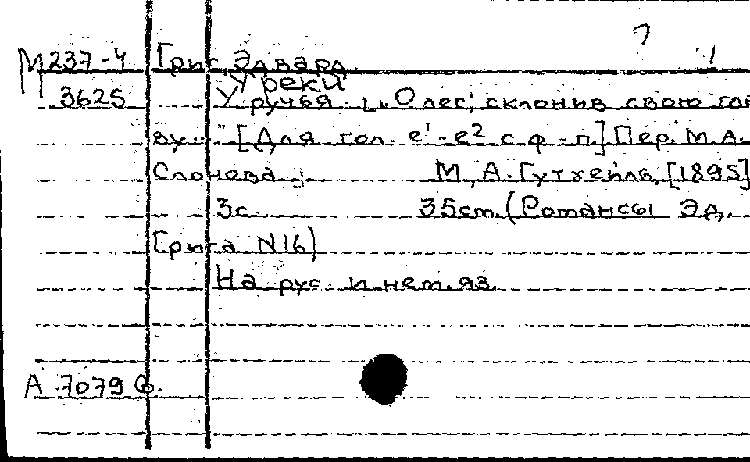 М237-4 Григ, Эдвард.
У реки
3625 У ручья. [„О лес, склонив свою гол
ву..." [Для гол. e¹-e² с ф.-п.] Пер. М.А.
Слонова. М., А. Гутхейль, [1895]
3с. 35см. (Романсы Эд.
Грига N16)
На рус. и нем. яз.
А 7079 б.